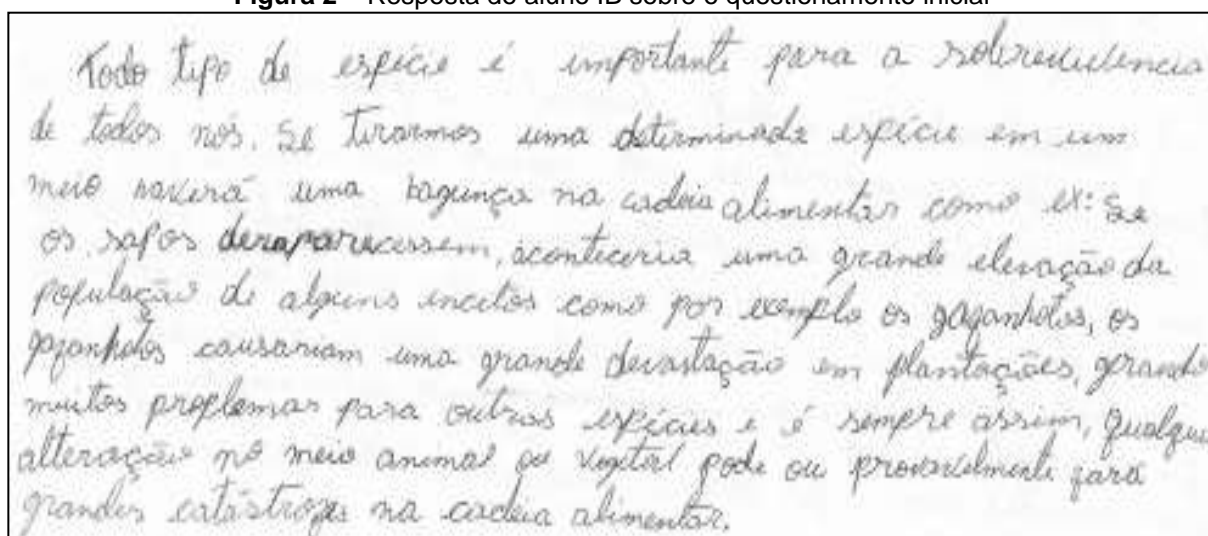 Todo tipo de espécie é importante para a sobrevivencia
de todos nós. Se tirarmos uma determinada espécie em um
meio haverá uma bagunça na cadeia alimentar como ex: se
os sapos desaparecessem, aconteceria uma grande elevação da
população de alguns incetos como por exemplo os gafanhotos, os
gafanhotos causariam uma grande devastação em plantações, gerando
muitos problemas para outras espécies e é sempre assim, qualquer
alteração no meio animal ou vegetal pode ou provavelmente fará
grandes catástrofes na cadeia alimentar.